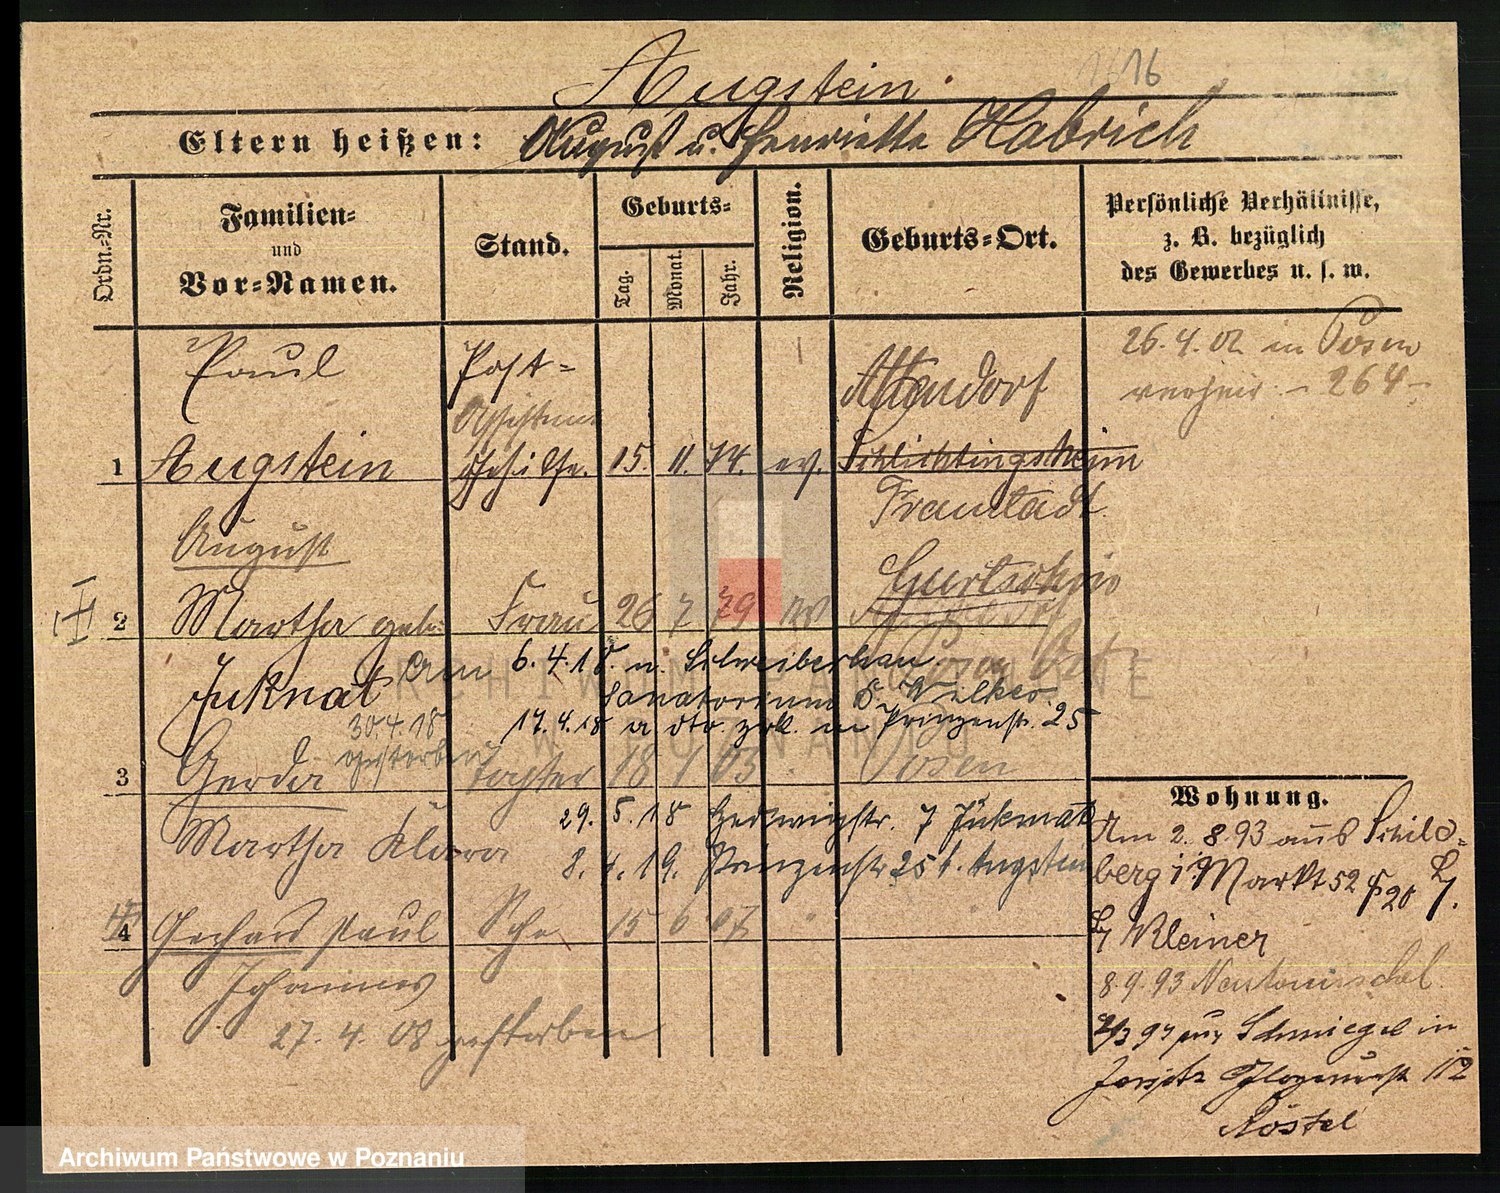 Augstein.
1616
Eltern heißen: August u. Henriette Habrich
Ordn.-Nr.
Familien-
und
Vor-Namen.
Stand.
Geburts-
Tag.
Monat.
Jahr.
Religion.
Geburts-Ort.
Persönliche Verhältnisse,
z. B. bezüglich
des Gewerbes u. s. w.
Paul
Post-
Assistent
26.4.02 in Posen
- 264 -
Attendorf
1 Augstein Gehilfe. 15. 11. 74. ev. Schlichtingsheim
Fraustadt.
August
2 Martha geb. Frau 26 7 79 ev
Juknat
am 6.4.18. n. Schreiberhau
Sanatorium Dr. Wilker
17.4.18 a dto. zrk. in Prinzenstr. 25
30.4.18
gestorben
3 Gerda Tochter 18 1 03 Posen
Martha Klara
29. 5. 18 Hedwigstr. 7 Jukmat
8. 4. 19. Prinzenstr 25 b. Augstein
4 Gerhard Paul 15 6 07 "
Johannes
27. 4. 08 gestorben
Wohnung.
Am 2. 8. 93 aus Schild-
berg Markt 52
Kleiner
8.9.93 Neutomischel
Schmiegel in
Jersitz 112
Röstel
ARCHIWUM PAŃSTWOWE
W POZNANIU
Archiwum Państwowe w Poznaniu